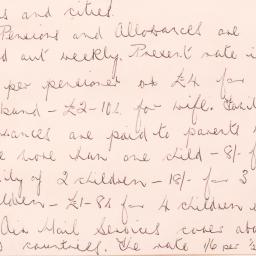 s and cities.
Pensions and Allowances are
d out weekly. Present rate i
per pensioner or £4 for
band - £2-10/- for wife. Fami
wances are paid to parents
e more than one child - 8/- f
ily of 2 children - 18/- for 3
ldren - £1-8/- for 4 children
Air Mail Services cover abo
countries. The rate 1/6 per ½